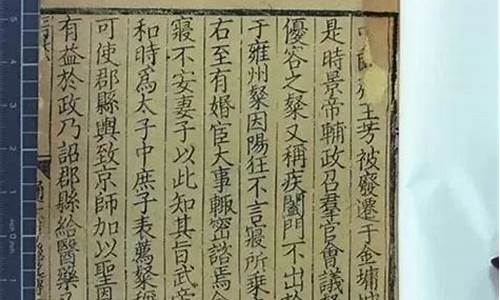 王芳被廢遷于金墉
是時景帝輔政召羣官會議
優容之粲又稱疾闔門不出於
于雍州粲因陽狂不言寢所乘
右至有婚宦大事輒密諮焉合
寢不安妻子以此知其旨武帝
和時為太子中庶子表薦粲稱
可使郡縣輿致京師加以聖
有益於政乃詔郡縣給醫藥又
通